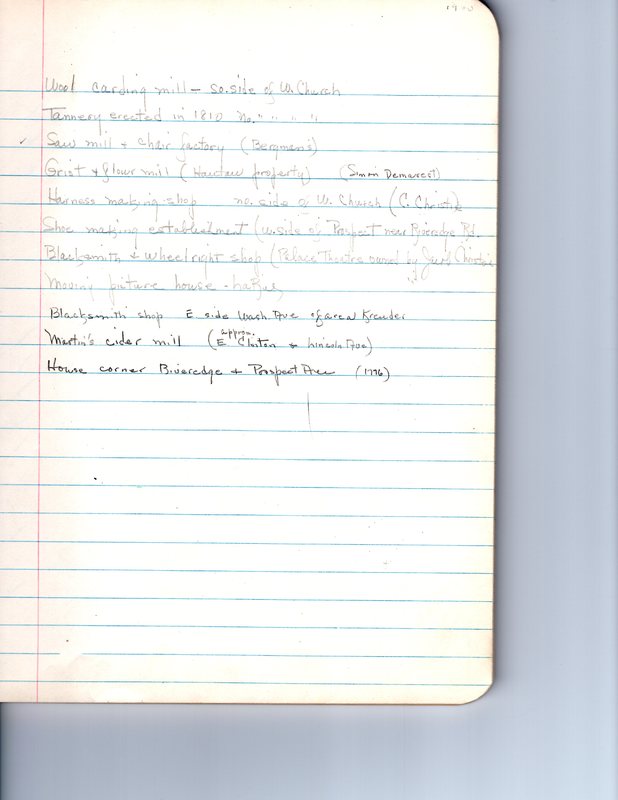 Wool carding mill - so. side of W. Church
Tannery erected in 1810 no. " " " "
✓ Saw mill + chair factory (Bergman's)
Grist + flour mill ( property) (Simon Demarest)
Harness making shop no. side of W. Church (C. Christie
Shoe making establishment (w. side of Prospect near Riveredge Rd.
Blacksmith + wheelright shop (Palace Theatre owned by Christie
Moving picture house -
Blacksmith shop E side Wash. Ave of area Kreuder
approx.
Martin's cider mill (E Clinton + Lincoln Ave)
House corner Riveredge + Prospect Ave (1776)